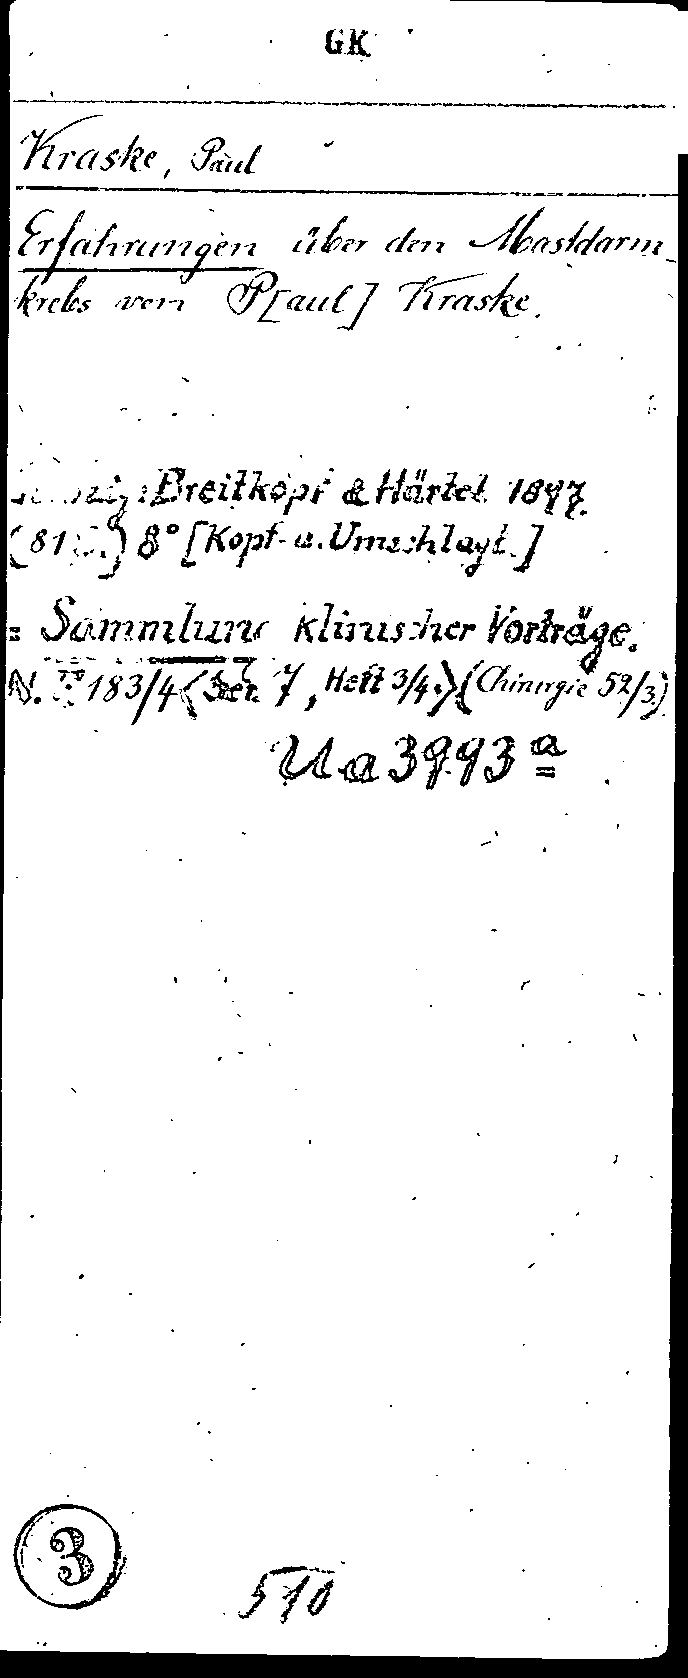 GK
Kraske, Paul
Erfahrungen über den Mastdarm-
krebs von P[aul] Kraske.
Leipzig: Breitkopf & Härtel 1897.
(81 S.) 8° [Kopf- u. Umschlagt.]
= Sammlung klinischer Vorträge.
N. F. 183/4 (Ser. 7, Heft 3/4.) (Chirurgie 52/3.)
Ua 3993 a
3
510